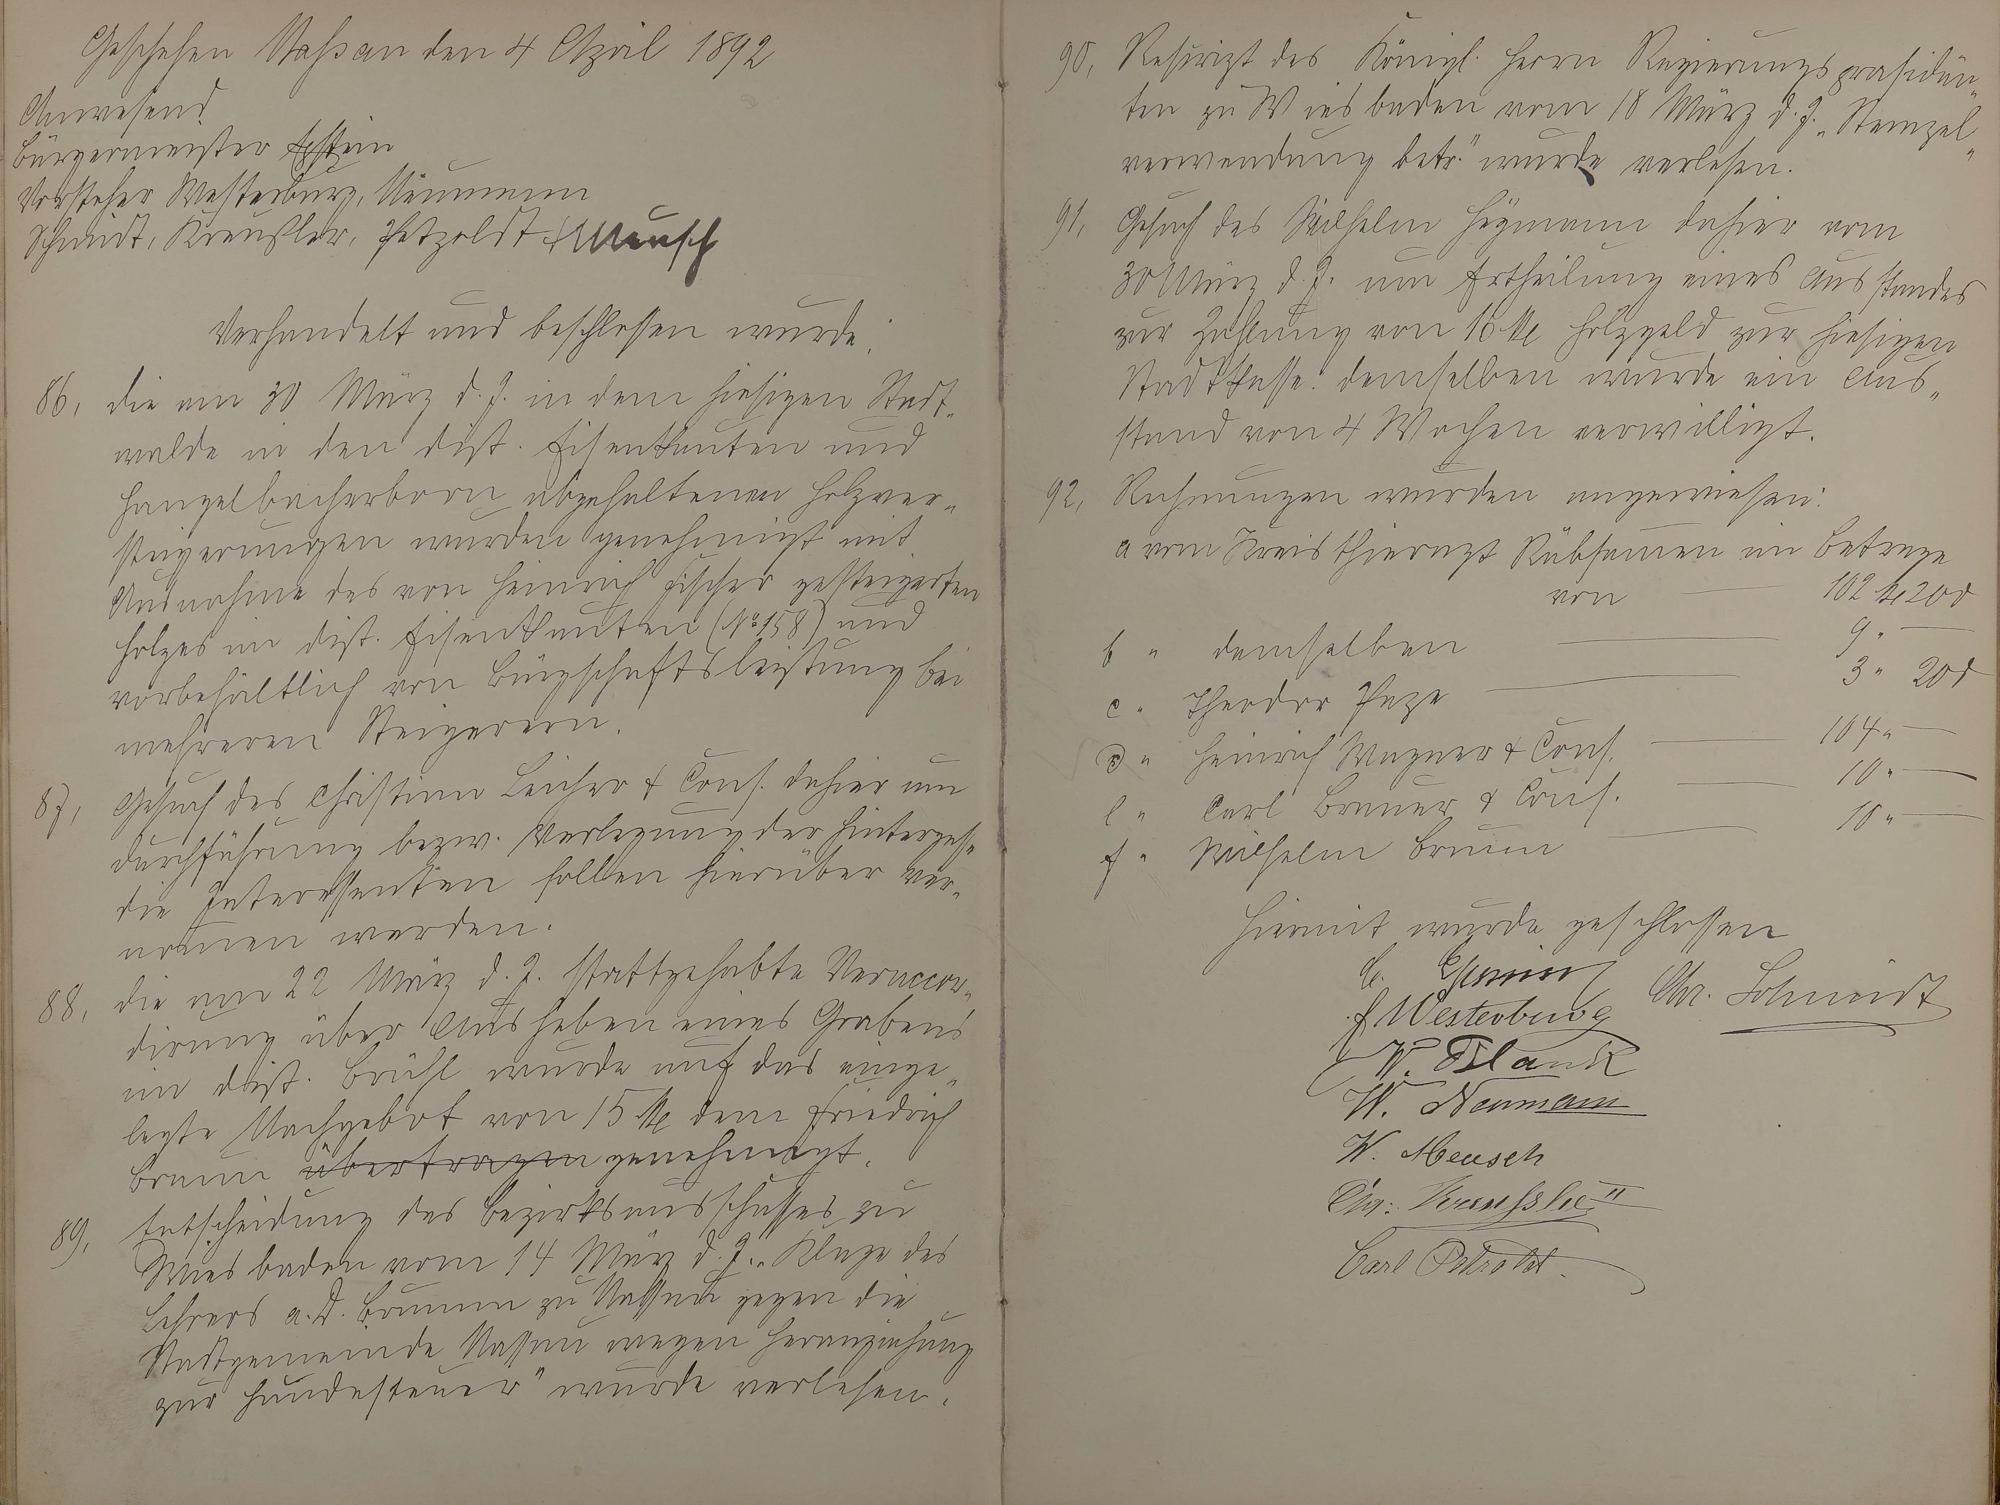 Geschehen Nassau den 4 April 1892
Anwesend
Bürgermeister Epstein
Vorsteher Westerburg, Neumann
Schmidt, Kreußler, Petzoldt & Meusch
Verhandelt und beschlossen wurde:
86, die am 30 März d. J. in dem hiesigen Stadt-
walde in den Dist. Eisenkauten und
Hangelbacherborn abgehaltenen Holzver-
steigerungen wurden genehmigt mit
Ausnahme des von Heinrich Fischer gesteigerten
Holzes im Dist. Eisenkauten (No 158) und
vorbehältlich von Bürgschaftsleistung bei
mehreren Steigerern.
87, Gesuch des Christian Leicher & Cons. dahier um
Durchführung bezw. Verlegung der Hintergasse
die Interessenten sollen hierüber ver-
nommen werden.
88, die am 22 März d. J. stattgehabte Veraccor-
dirung über Ausheben eines Grabens
im Dist. Brühl wurde auf das einge-
legte Nachgebot von 15 M dem Friedrich
Braun übertragen genehmigt.
89, Entscheidung des Bezirksausschusses zu
Wiesbaden vom 14 März d. J. „Klage des
Lehrers a. D. Brumm zu Nassau gegen die
Stadtgemeinde Nassau wegen Heranziehung
zur Hundesteuer" wurde verlesen.
90, Reskript des Königl. Herrn Regierungspräsiden-
ten zu Wiesbaden vom 18 März d. J. „Stempel-
verwendung betr." wurde verlesen.
91, Gesuch des Wilhelm Heymann dahier vom
30 März d. J. um Ertheilung eines Ausstandes
zur Zahlung von 16 M Holzgeld zur hiesigen
Stadtkasse. demselben wurde ein Aus-
stand von 4 Wochen verwilligt.
92, Rechnungen wurden angewiesen:
a vom Kreisthierarzt Rübsamen im Betrage
von — 102 M 20 d
b " demselben — 9 " —
c " Theodor — 3 " 20 d
d " Heinrich Wagner & Cons. — 104 " —
e " Carl Brauer & Cons. — 10 " —
f " Wilhelm Braun — 10 " —
Hiermit wurde geschlossen
Chr. Schmidt
F Westerburg
W. Plank
W. Neumann
W. Meusch
Chr: Kreussler II
Carl Petzoldt.